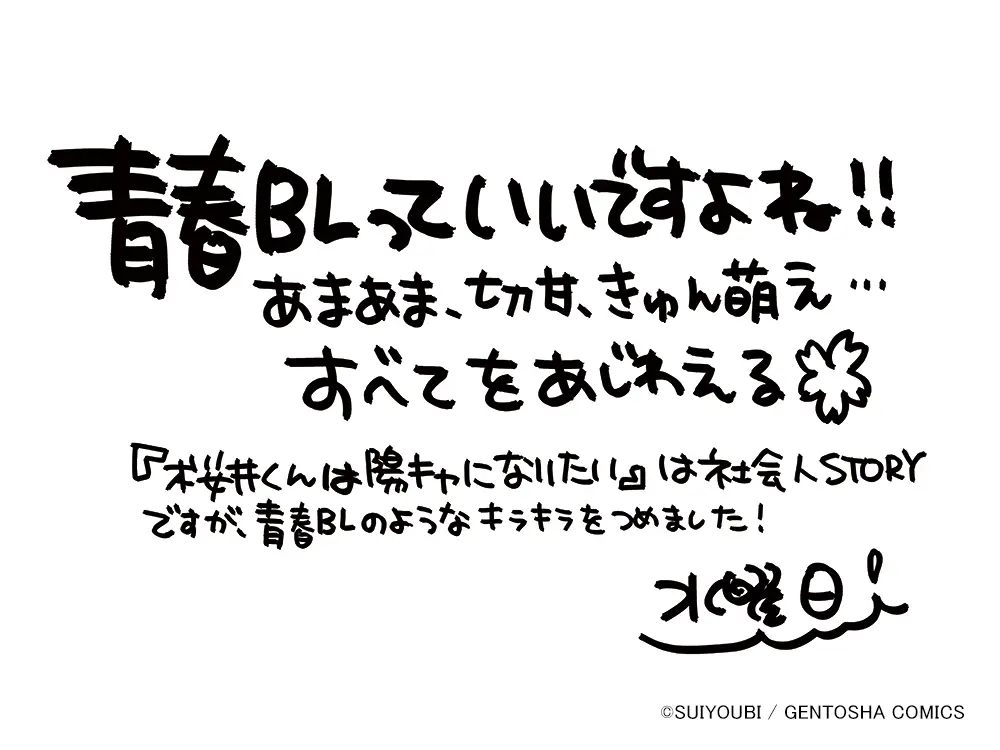 青春BLっていいですよね!!
あまあま、切甘、きゅん萌え…
すべてをあじわえる
『桜井くんは陽キャになりたい』は社会人STORY
ですが、青春BLのようなキラキラをつめました!
水曜日
©SUIYOUBI / GENTOSHA COMICS